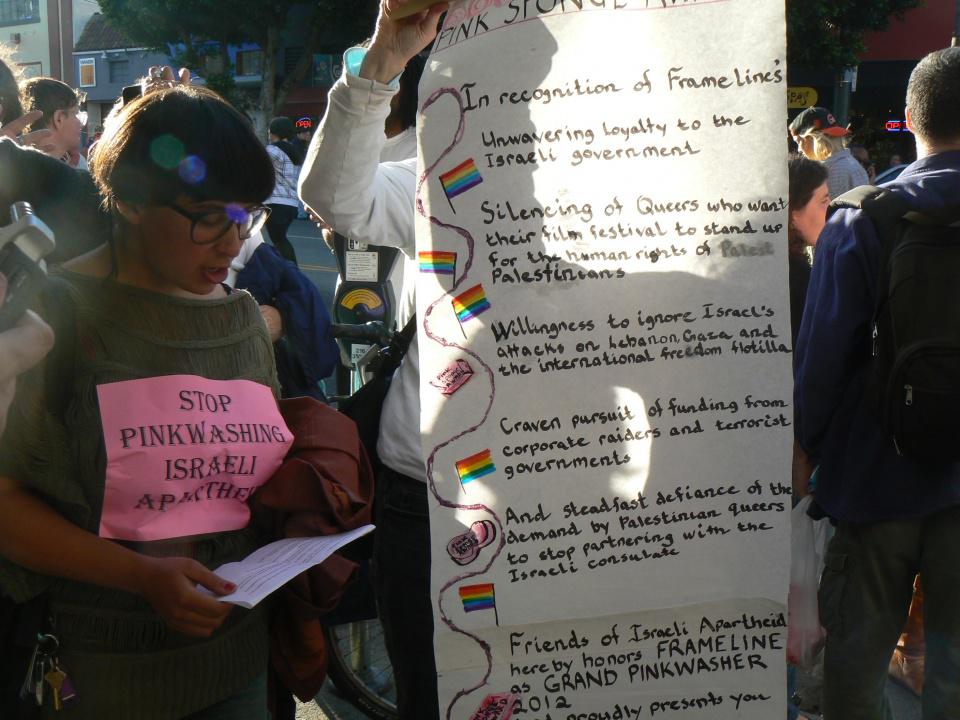 PINK SPONGE
In recognition of Frameline's
Unwavering loyalty to the
Israeli government
Silencing of Queers who want
their film festival to stand up
for the human rights of Palest
Palestinians
Willingness to ignore Israel's
attacks on Lebanon, Gaza and
the international freedom flotilla
Craven pursuit of funding from
corporate raiders and terrorist
governments
And steadfast defiance of the
demand by Palestinian queers
to stop partnering with the
Israeli consulate
Friends of Israeli Apartheid
hereby honors FRAMELINE
as GRAND PINKWASHER
2012
proudly presents you
STOP
PINKWASHING
ISRAELI
APARTHE
OPEN